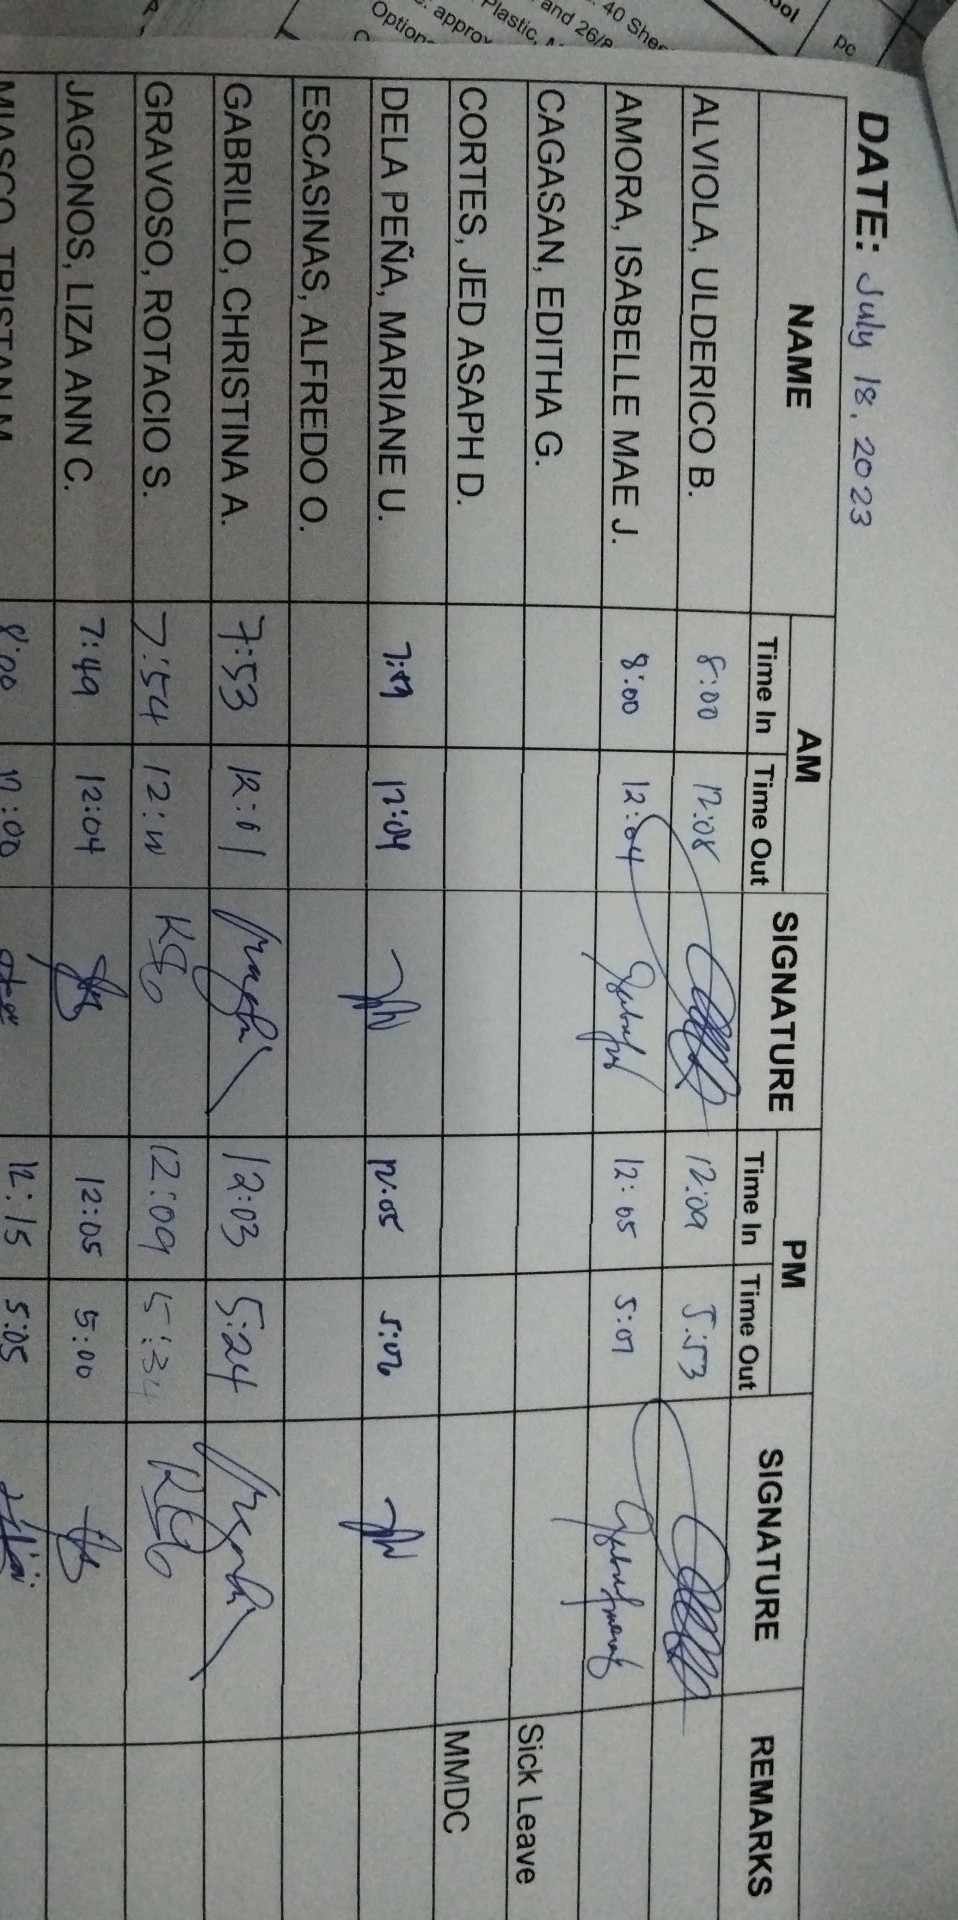 40 Shee
and 26/8
Plastic,
approx
Option
ool
pc
DATE: July 18, 2023
NAME AM SIGNATURE PM SIGNATURE REMARKS
Time In Time Out Time In Time Out
ALVIOLA, ULDERICO B. 8:00 12:08 12:09 5:53
AMORA, ISABELLE MAE J. 8:00 12:04 12:05 5:07
CAGASAN, EDITHA G. Sick Leave
CORTES, JED ASAPH D. MMDC
DELA PEÑA, MARIANE U. 12:04 12:05 5:06
ESCASINAS, ALFREDO O.
GABRILLO, CHRISTINA A. 7:53 12:01 12:03 5:24
GRAVOSO, ROTACIO S. 7:54 12:09 5:34
JAGONOS, LIZA ANN C. 7:49 12:04 12:05 5:00
MIASCO, TRISTAN M. 8:00 12:00 12:15 5:05